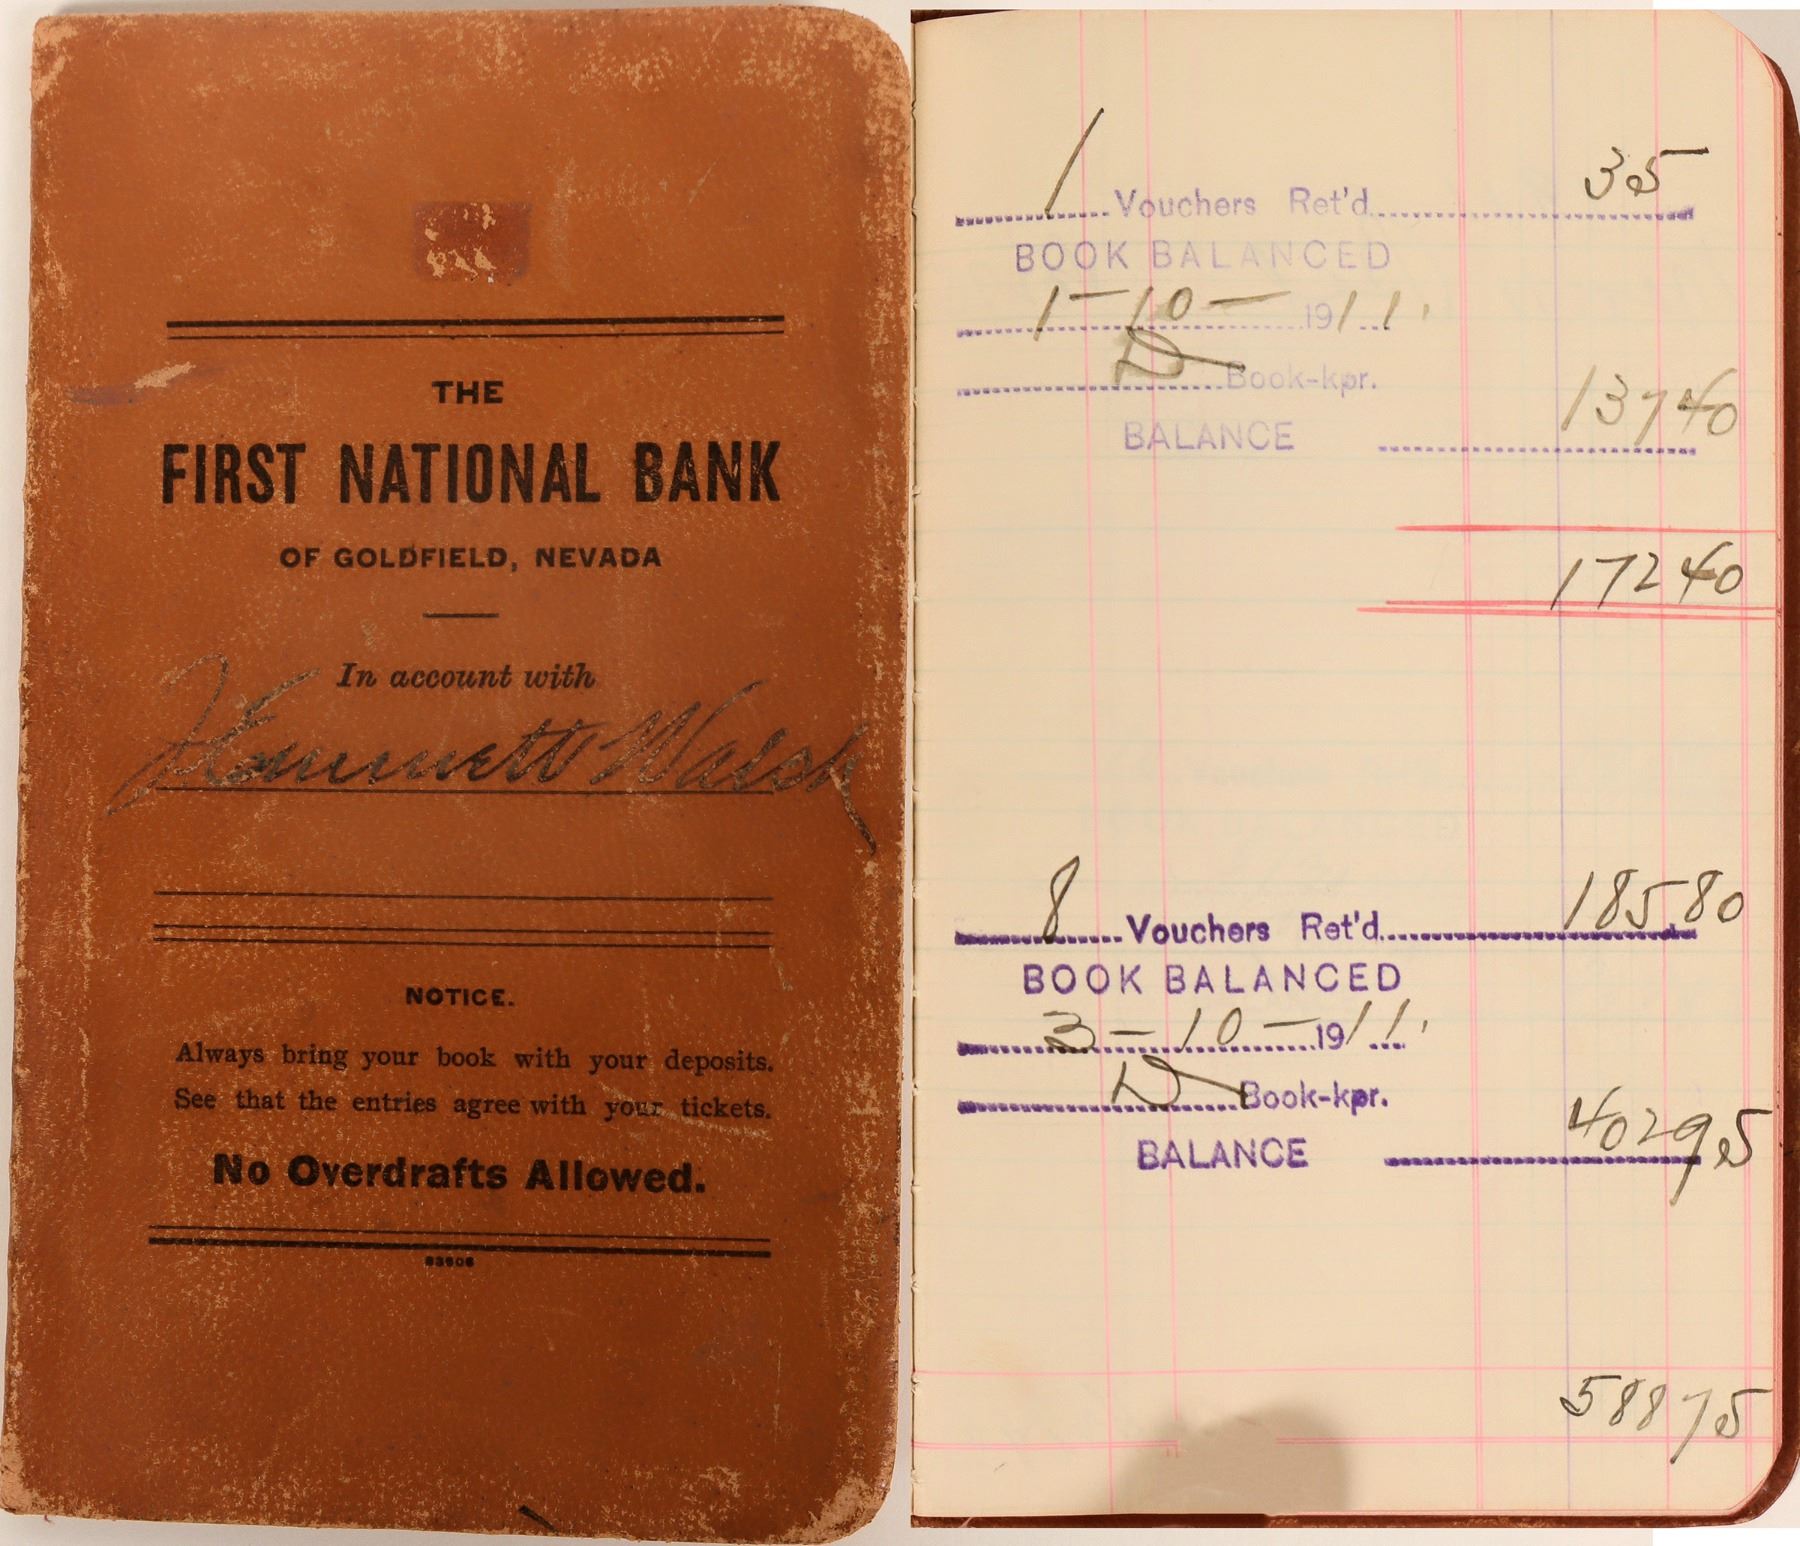 THE
FIRST NATIONAL BANK
OF GOLDFIELD, NEVADA
In account with
Walsh
NOTICE.
Always bring your book with your deposits.
See that the entries agree with your tickets.
No Overdrafts Allowed.
83606
1 Vouchers Ret'd 35
BOOK BALANCED
1-10-1911.
D Book-kpr.
BALANCE 137 40
172 40
8 Vouchers Ret'd 185.80
BOOK BALANCED
3-10-1911.
D Book-kpr.
BALANCE 402 95
588 75